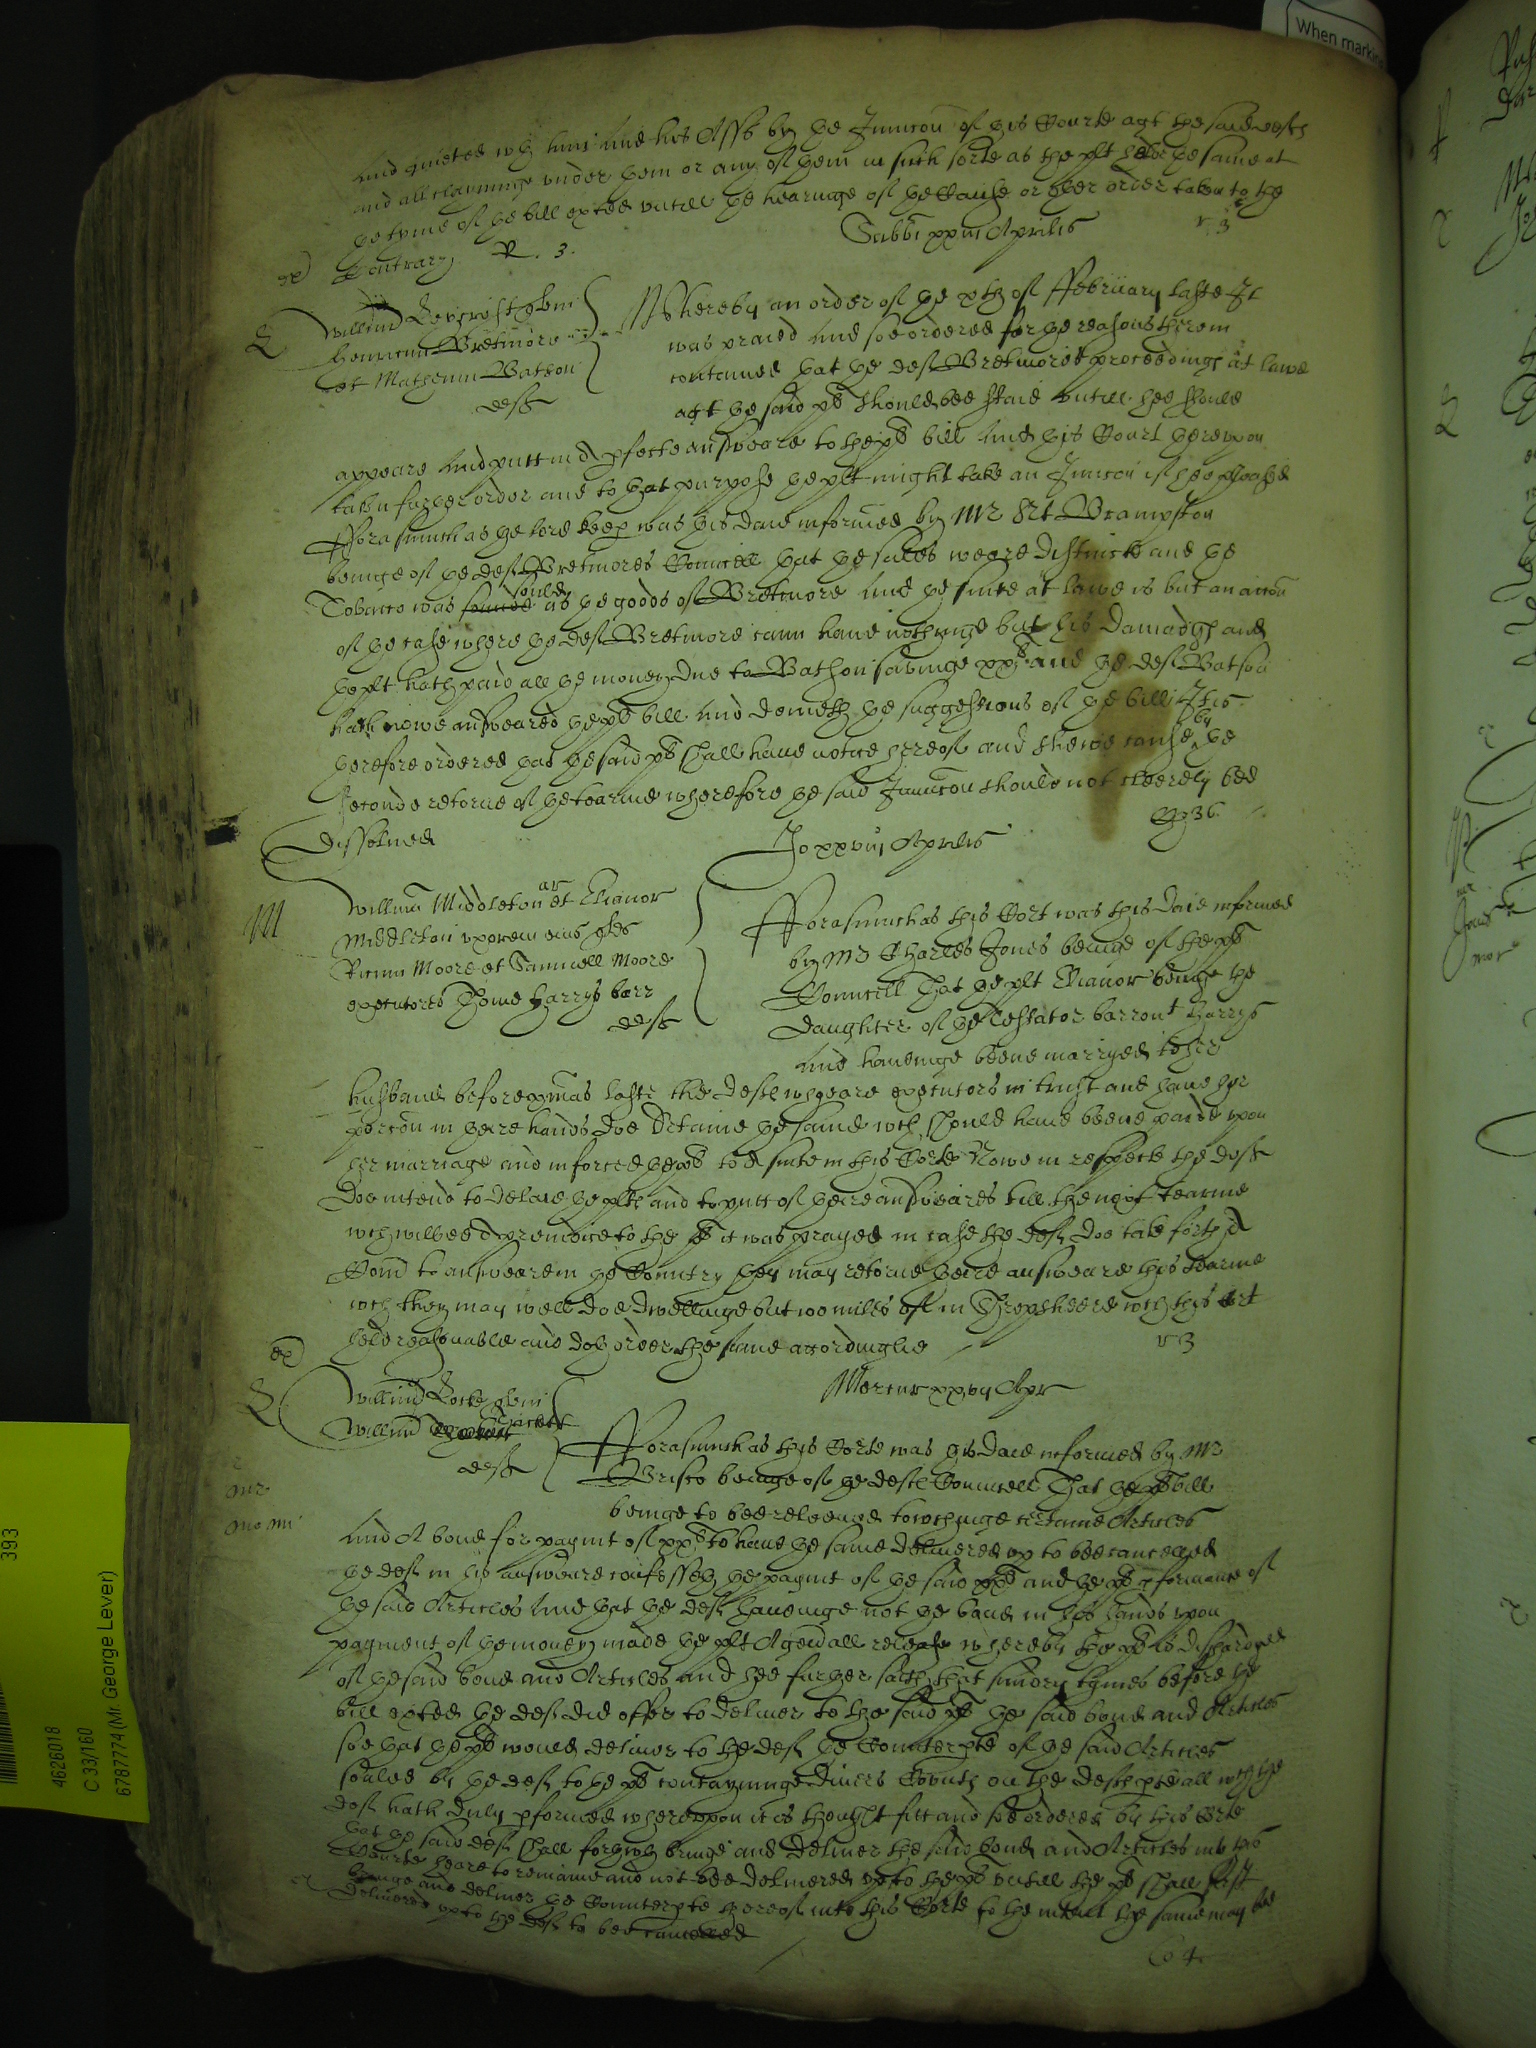 When marking
and quieted wth him and his Ass~ by ye Iniuncon of this Courte agt the said defts
and all clayminge vnder them or any of them in such sorte as the plt held ye same at
ye tyme of ye bill exted vntill ye hearinge of ye Cause or other order taken to the
Contrary R. 3.
Sabbi xxiii Aprilis
r 3
Willm
henricum Wretmore
et Matheum Watson
deft
Whereby an order of ye xth of ffebruary laste It
was praied and soe ordered for ye reasons therein
contained that ye def Wretmores proceedings at lawe
agt ye said plt should bee staid vntill hee should
appeare and putt in A pfecte answeare to the plt bill and this Court therevpon
taken further order and to that purpose ye plt might take an Iniuncon if hee pleased
fforasmuch as ye lord keep was this daie informed by Mr Brampston
beinge of ye def Wretmores Councell that ye sales weare distincte and ye
Tobacco was sould as ye goods of Wretmore and ye suite at lawe is but an accon
of ye case where ye def Wretmore cann haue nothinge but his Damadgs and
ye plt hath paid all ye money due to Watson savinge xxs and ye def Watson
hath nowe answeared ye plt bill and denieth ye suggestions of ye bill It is
therefore ordered that ye said plt shall haue notice hereof and shewe cause by ye
second retorne of ye tearme wherefore ye said Iniuncon should not cleerely bee
dissolued
36
Jo xxviii Aprilis
M
Willm Middleton ar et Elianor
Middleton vxorem eius
Moore et Samuell Moore
executores Thome Harrys barr
deft
fforasmuch as this Cort was this daie informed
by Mr Charles Jones beinge of the plt
Councell That ye plt Elianor beinge the
daughter of ye Testator barront Harrys
and haueinge beene marryed to her
husband before xmas laste the deftes wch are executors in trust and haue her
porcon in theire hands doe detaine ye same wch should haue beene paide vpon
her marriage and inforced ye plt to A suite in this Corte Nowe in respecte the deft
doe intend to delaie ye plts and to putt of theire answeares till the next tearme
wch wilbee A preiudice to the plt it was prayed in case the deft doe take forth A
Com to answeare in ye Country they may retorne theire answeare this tearme
wch they may well doe dwellinge but 100 miles of in Shropsheere wch this Crt
held reasonable and doth order the same accordinglie
r 3
Mercur xxvii Apr
Willm
Willm
deft
fforasmuch as this Corte was this daie informed by Mr
Brisco beinge of ye deft Councell That ye plt bill
beinge to bee releeued towchinge certaine Articles
and A bond for paymt of xxs to haue ye same deliuered vp to bee cancelled
ye def in his answeare confesseth ye paymt of ye said and ye plt pformance of
ye said Articles and that ye def haueinge not ye bond in his hands vpon
payment of ye money made ye plt A genall release whereby the plt is discharged
of ye said bond and Articles and hee further saith that sundry tymes before the
bill exted ye def did offer to deliuer to the said plt ye said bond and Articles
soe that ye plt would deliuer to the def ye Counterpte of ye said Articles
sealed by ye def to ye plt contayninge diuers Couts on the defts pte all wch the
def hath duly pformed wherevpon it is thought fitt and soe ordered by this Corte
that ye said def shall forthwth bringe and deliuer the said bond and Articles into this
Courte heare to remaine and not bee deliuered vp to the plt vntill the plt shall first
bringe and deliuer ye Counterpte thereof into this Corte to the intent the same may bee
deliuered vp to the def to bee cancelled
393
4626018
C 33/160
6787774 (Mr George Lever)